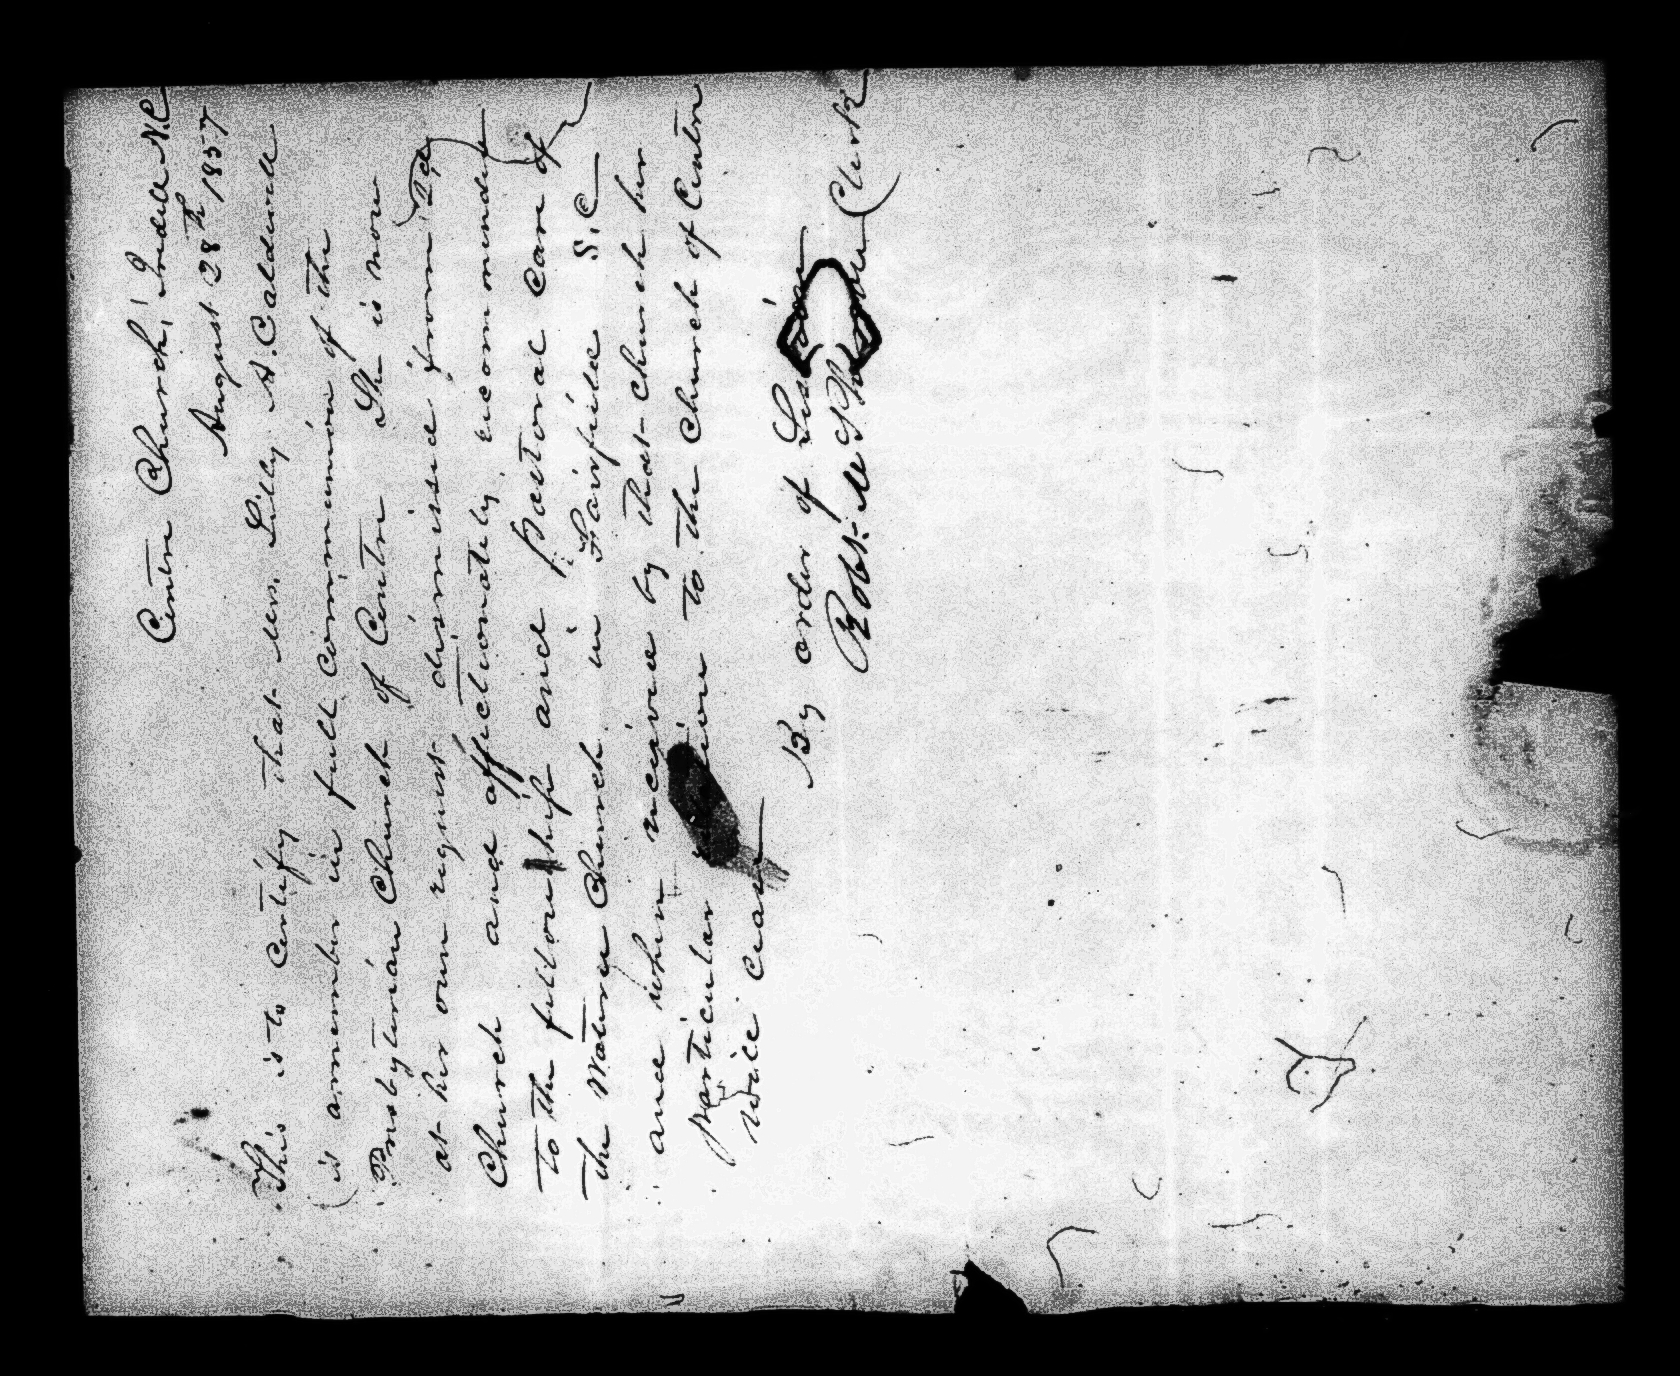 Centre Church, Iredell N.C.
August 28th 1857
This is to Certify that Mrs. Lilly A. Caldwell
is a member in full Communion of the
Presbyterian Church of Centre She is now
at her own request dismissed from sd
Church and affectionately recommended
to the fellowship and pastoral Care of
the Materee Church in Fairfield S.C
and when received by that Church her
particular to the Church of Centre
will cease
By order of Session
Robt. M Clerk